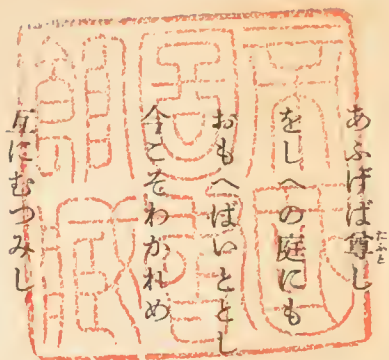 あふげば尊し
をしへの庭にも
おもへばいととし
今こそわかれめ
互にむつみし